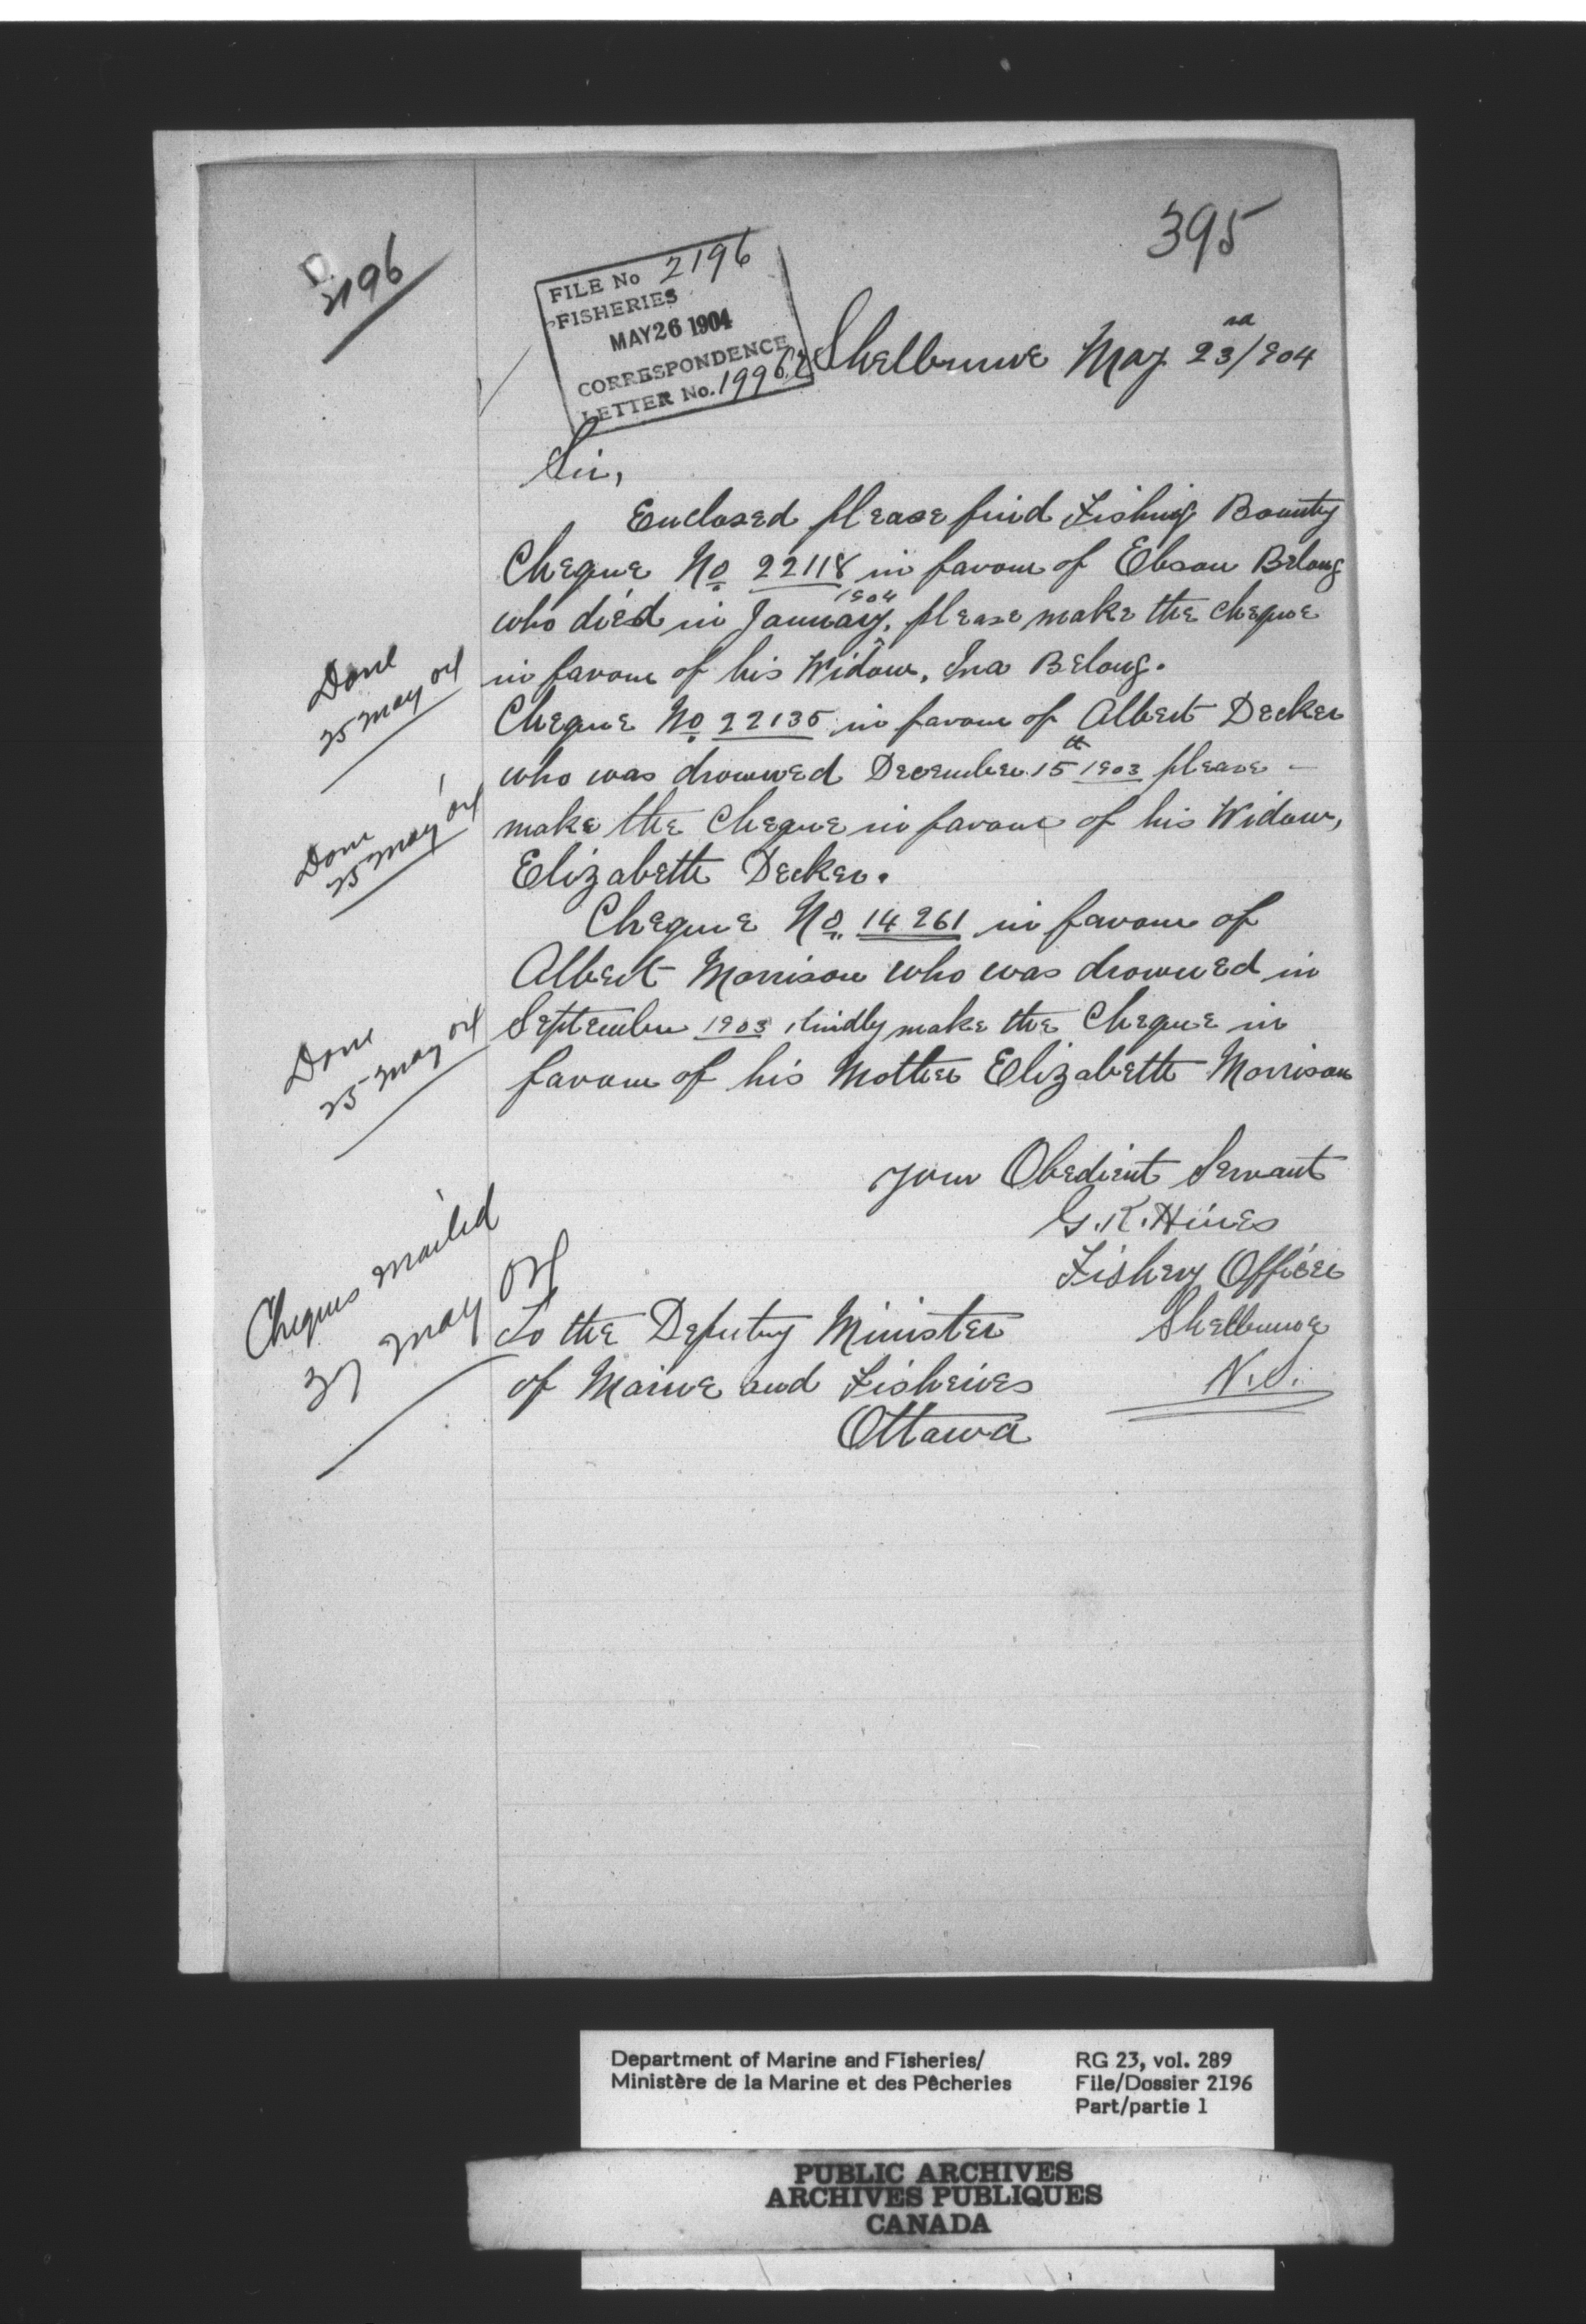 395
D.
2196
FILE No 2196
FISHERIES
MAY 26 1904
CORRESPONDENCE
LETTER No. 1996
Shelburne May 23rd/904
Sir,
Enclosed please find Fishing Bounty
Cheque No 22118 in favour of Ebson Belong
who died in January, 1904 please make the cheque
in favour of his Widow, Ina Belong.
Cheque No 22135 in favour of Albert Decker
who was drowned December 15th 1903 please –
make the Cheque in favour of his Widow,
Elizabeth Decker.
Cheque No 14261 in favour of
Albert Morrison who was drowned in
September 1903, kindly make the Cheque in
favour of his Mother Elizabeth Morrison
Your Obedient Servant
G. K. Hines
Fishery Officer
Shelburne
N.S.
To the Deputy Minister
of Marine and Fisheries
Ottawa
Done
25 May 04
Done
25 May 04
Done
25 May 04
Cheques mailed
May 04
Department of Marine and Fisheries/
Ministère de la Marine et des Pêcheries
RG 23, vol. 289
File/Dossier 2196
Part/partie 1
PUBLIC ARCHIVES
ARCHIVES PUBLIQUES
CANADA